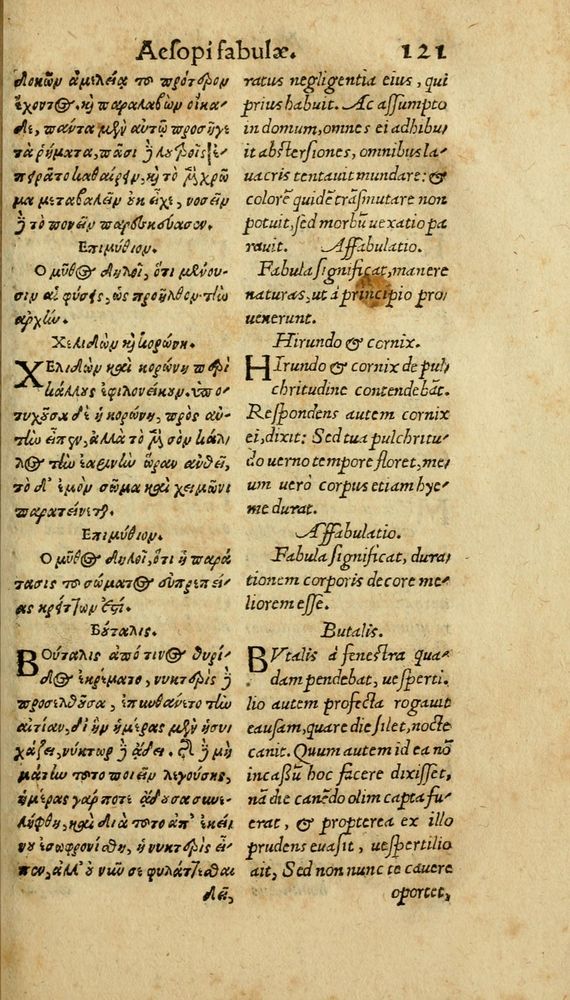 Aesopi fabulæ. 121
δοκῶν ἀμελείᾳ τοῦ πρότερον
ἔχοντος. καὶ παραλαβὼν οἴκα-
δε, πάντα μὲν αὐτῷ προσῆγε
τὰ ῥήματα, πᾶσι δὲ λουτροῖς ἐ-
πειρᾶτο καθαίρειν, καὶ τὸ μὲν χρῶ
μα μεταβαλεῖν οὐκ εἶχε, νοσεῖν
δὲ τὸ πονεῖν παρεσκεύασεν.
Επιμύθιον.
Ο μῦθος δηλοῖ, ὅτι μένου-
σιν αἱ φύσεις, ὡς προῆλθον τὴν
ἀρχήν.
Χελιδὼν καὶ κορώνη.
ΧΕλιδὼν καὶ κορώνη περὶ
κάλλους ἐφιλονείκουν. ὑπο-
τυχοῦσα δὲ ἡ κορώνη, πρὸς αὐ-
τὴν εἶπεν, ἀλλὰ τὸ μὲν σὸν κάλ-
λος τὴν ἐαρινὴν ὥραν ἀνθεῖ,
τὸ δ' ἐμὸν σῶμα καὶ χειμῶνι
παρατείνεται.
Επιμύθιον.
Ο μῦθος δηλοῖ, ὅτι ἡ παρά
τασις τοῦ σώματος εὐπρεπεί-
ας κρείττων ἐστί.
Βούταλις.
ΒΟύταλις ἀπό τινος θυρί-
δος ἐκρέματο, νυκτερὶς δὲ
προσελθοῦσα, ἐπυνθάνετο τὴν
αἰτίαν, δι' ἣν ἡμέρας μὲν ἡσυ
χάζει, νύκτωρ δὲ ᾄδει. τῆς δὲ μὴ
μάτην τοῦτο ποιεῖν λεγούσης,
ἡμέρας γάρ ποτε ᾄδουσα συνε-
λήφθη, καὶ διὰ τοῦτο ἀπ' ἐκείν
ου ἐσωφρονίσθη, ἡ νυκτερὶς εἶ-
πεν, ἀλλ' οὐ νῦν σε φυλάττεσθαι
δεῖ,
ratus negligentia eius, qui
prius habuit. Ac assumpto
in domum, omnes ei adhibu-
it abstersiones, omnibus la-
uacris tentauit mundare: &
colorē quidē trāsmutare non
potuit, sed morbū uexatio pa
rauit. Affabulatio.
Fabula significat, manere
naturas, ut à principio pro-
uenerunt.
Hirundo & cornix.
HIrundo & cornix de pul-
chritudine contendebāt.
Respondens autem cornix
ei, dixit: Sed tua pulchritu-
do uerno tempore floret, me-
um uerò corpus etiam hye-
me durat.
Affabulatio.
Fabula significat, dura-
tionem corporis decore me-
liorem esse.
Butalis.
BVtalis à fenestra qua-
dam pendebat, uesperti-
lio autem profecta rogauit
causam, quare die silet, nocte
canit. Quum autem id ea nō
incassū hoc facere dixisset,
nā die canēdo olim capta fu-
erat, & propterea ex illo
prudens euasit, uespertilio
ait, Sed non nunc te cauere
oportet,